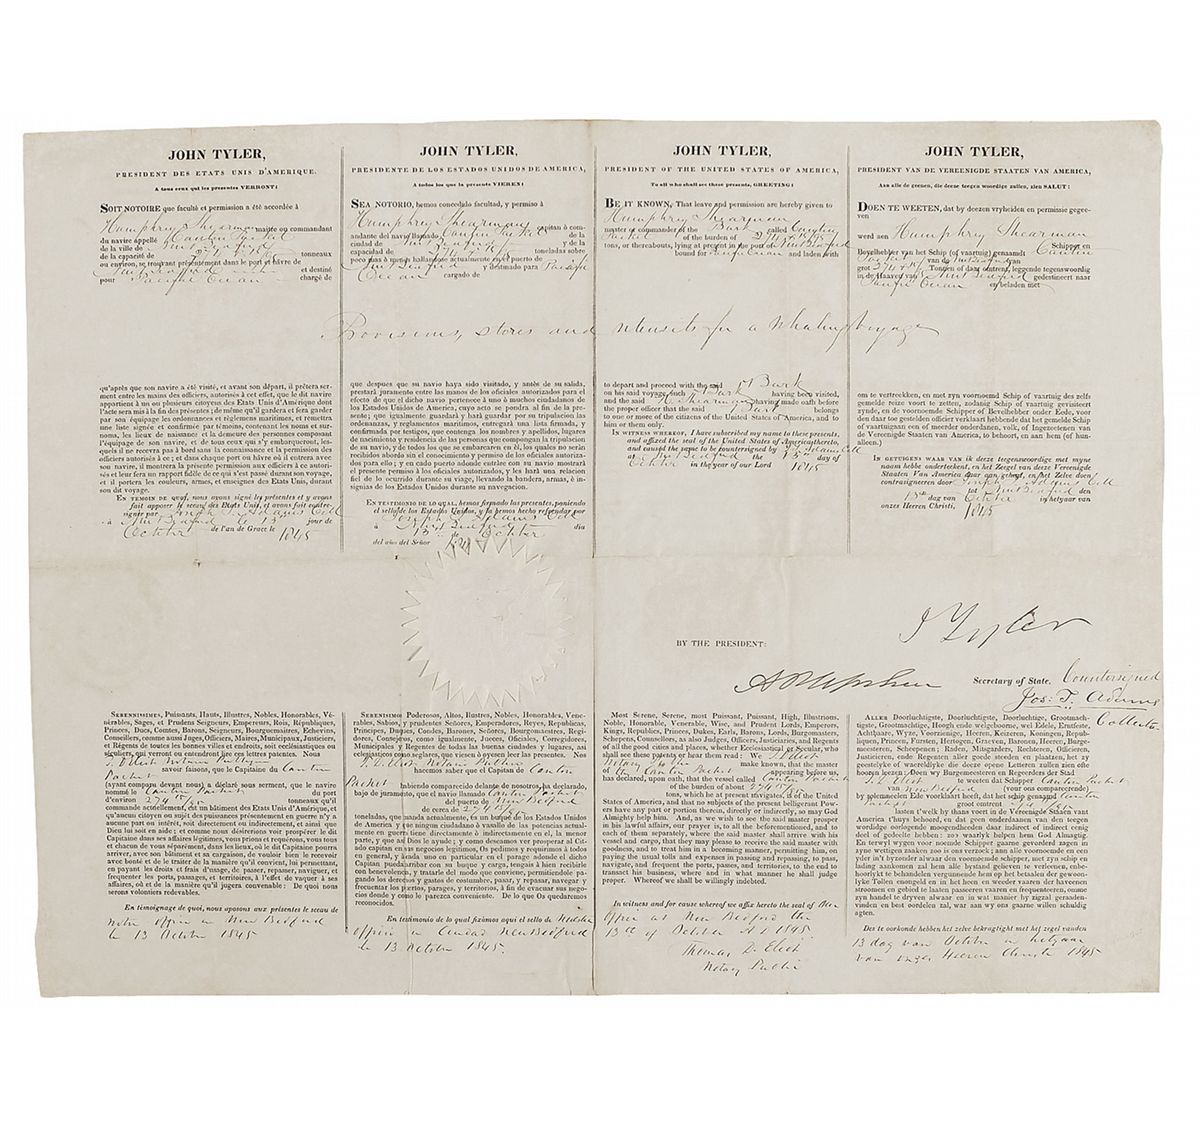 JOHN TYLER,
PRESIDENT DES ETATS UNIS D'AMERIQUE.
A tous ceux qui les presentes VERRONT:
SOIT NOTOIRE que faculté et permission a été accordée à
Humphrey Shearman maitre ou commandant
du navire appellé Canton Packet
de la ville de New Bedford
de la capacité de tonneaux
ou environ, se trouvant présentement dans le port et hâvre de
New Bedford et destiné
pour Pacific Ocean chargé de
qu'après que son navire a été visité, et avant son départ, il prêtera ser-
ment entre les mains des officiers, autorisés à cet effet, que le dit navire
appartient à un ou plusieurs citoyens des Etats Unis d'Amérique dont
l'acte sera mis à la fin des présentes; de même qu'il gardera et fera garder
par son équipage les ordonnances et réglemens maritimes, et remettra
une liste signée et confirmée par témoins, contenant les noms et sur-
noms, les lieux de naissance et la demeure des personnes composant
l'équipage de son navire, et de tous ceux qui s'y embarqueront, les-
quels il ne recevra pas à bord sans la connaissance et la permission
des officiers autorisés à ce; et dans chaque port ou hâvre où il entrera avec
son navire, il montrera la présente permission aux officiers à ce autori-
sés et leur fera un rapport fidèle de ce qui s'est passé durant son voyage,
et il portera les couleurs, armes, et enseignes des Etats Unis, durant
son dit voyage.
EN TEMOIN DE QUOI, nous avons signé les présentes et y avons
fait apposer le sceau des Etats Unis, et avons fait contre-
signer par Joseph T. Adams Coll
à New Bedford le 13 jour de
October de l'an de Grace le 1845
JOHN TYLER,
PRESIDENTE DE LOS ESTADOS UNIDOS DE AMERICA,
A todos los que la presente VIEREN:
SEA NOTORIO, hemos concedido facultad, y permiso à
Humphrey Shearman capitan ó com-
andante del navío llamado Canton Packet de la
ciudad de New Bedford y de la
capacidad de toneladas sobre
poco mas ó menos hallandose actualmente en el puerto de
New Bedford y destinado para Pacific
Ocean cargado de
que despues que su navio haya sido visitado, y ántes de su salida,
prestará juramento entre las manos de los oficiales autorizados para el
efecto de que el dicho navio pertenece à uno ó muchos ciudadanos de
los Estados Unidos de America, cuyo acto se pondra al fin de la pre-
sente; que igualmente guardará y hará guardar por su tripulacion las
ordenanzas, y reglamentos maritimos, entregará una lista firmada, y
confirmada por testigos, que contenga los nombres y apellidos, lugares
de nacimiento y residencia de las personas que compongan la tripulacion
de su navio, y de todos los que en el se embarquen quienes no serán
recibidos abordo sin el conocimiento y permiso de los oficiales autoriza-
dos para ello; y en cada puerto adonde entráre con su navio mostrará
el presente permiso à los oficiales autorizados, y les hará una relacion
fiel de lo ocurrido durante su viage, llevando la bandera, armas, é in-
signias de los Estados Unidos durante su navegacion.
EN TESTIMONIO DE LO QUAL, hemos firmado las presentes, poniendo
el sello de los Estados Unidos, y la hemos hecho refrendar por
Joseph T. Adams Coll
à New Bedford dia
13 de October
del año del Señor
JOHN TYLER,
PRESIDENT OF THE UNITED STATES OF AMERICA,
To all who shall see these presents, GREETING:
BE IT KNOWN, That leave and permission are hereby given to
Humphrey Shearman
master or commander of the Bark called Canton
Packet of the burden of
tons, or thereabouts, lying at present in the port of New Bedford
bound for Pacific Ocean and laden with
Provisions, stores and utensils for a whaling voyage
to depart and proceed with the said Bark
on his said voyage, such Bark having been visited,
and the said H Shearman having made oath before
the proper officer that the said Bark belongs
to one or more of the citizens of the United States of America, and to
him or them only.
IN WITNESS WHEREOF, I have subscribed my name to these presents,
and affixed the seal of the United States of America thereto,
and caused the same to be countersigned by
at New Bedford the 13 day of
October in the year of our Lord 1845
JOHN TYLER,
PRESIDENT VAN DE VEREENIGDE STATEN VAN AMERICA,
Aan alle de geenen, die deeze teegen woordige zullen, zien SALUT:
DOEN TE WEETEN, dat by deezen vryheiden en permissie gegee-
ven
werd aen Humphrey Shearman
Schipper en
Bevelhebber van het Schip (of vaartuig) genaamdt Canton
Packet van de New Bedford van
grot Tonnen of daar omtrent, leggende tegenswoordig
in de Haaven van New Bedford gedestineert naar
Pacific Ocean en beladen met
om te vertrekken, en met zyn voornoemd Schip of vaartuig des zelfs
gemelde reize voort te zetten, zodanig Schip of vaartuig gevisiteert
zynde, en de voornoemde Schipper of Bevelhebber onder Eede, voor
den daar toe gestelden officier verklaart hebbende dat het gemelde Schip
of vaartuigaan een of meerder onderdanen, volk, of Ingezetenen van
de Vereenigde Staaten van America, to behoort, en aan hem (of hun-
alleen.)
IN GETUIGENS WAAR VAN ik deeze teegenswoordige met myne
naam hebbe onderteekend, en het Zeegel van deze Vereenigde
Staaten Van America daar aan gehegt, en het Zelve doen
contrasigneren door Joseph T. Adams Coll
tot New Bedford den
13th dag van October in het jaar van
onzes Heeren Christi, 1845
BY THE PRESIDENT:
J Tyler
A P Upshur
Secretary of State.
Countersigned
Jos: T. Adams
Collector
SERENISSIMES, Puissants, Hauts, Illustres, Nobles, Honorables, Vé-
nérables, Sages, et Prudens Seigneurs, Empereurs, Rois, Républiques,
Princes, Ducs, Comtes, Barons, Seigneurs, Bourguemestres, Echevins,
Conseillers, comme aussi Juges, Officiers, Maires, Municipaux, Justiciers,
et Régents de toutes les bonnes villes et endroits, soit ecclésiastiques ou
séculiers, qui verront ou entendront lire ces lettres patentes. Nous
savoir faisons, que le Capitaine du Canton
Packet
(ayant comparu devant nous) a déclaré sous serment, que le navire
nommé le Canton Packet du port
d'environ 274 tonneaux qu'il
commande actuellement, est un bâtiment des Etats Unis d'Amérique, et
qu'aucun citoyen ou sujet des puissances présentement en guerre n'y a
aucune part ou intérêt, soit directement ou indirectement, et ainsi que
Dieu lui soit en aide; et comme nous désirerions voir prospérer le dit
Capitaine dans ses affaires légitimes, vous prions et requérons, vous tous
et chacun de vous séparément, dans les lieux, où le dit Capitaine pourra
arriver, avec son bâtiment et sa cargaison, de vouloir bien le recevoir
avec bonté et de le traiter de la manière qu'il convient, lui permettant,
en payant les droits et frais d'usage, de passer, repasser, naviguer, et
fréquenter les ports, passages, et territoires, à l'effet de vaquer à ses
affaires, où et de la manière qu'il jugera convenable: De quoi nous
serons volontiers redevable.
En témoignage de quoi, nous aposons aux présentes le sceau de
notre office in New Bedford
le 13 October 1845
SERENISIMOS Poderosos, Altos, Ilustres, Nobles, Honorables, Vene-
rables, Sabios, y prudentes Señores, Emperadores, Reyes, Republicas,
Principes, Duques, Condes, Barones, Señores, Bourgomaestres, Regi-
dores, Consejeros, como igualmente, Jueces, Oficiales, Corregidores,
Municipales y Regentes de todas las buenas ciudades y lugares, asi
eclesiasticos como seglares, que vieren ó oyesen leer las presentes. Nos
T. D. Eliot Notario Publico
hacemos saber que el Capitan de Canton
Packet habiendo comparecido delante de nosotros, ha declarado,
bajo de juramento, que el navio llamado Canton Packet
del puerto de New Bedford
de cerca de 274
toneladas, que manda actualmente, es un buque de los Estados Unidos
de America y que ningun ciudadano ó vasallo de las potencias actual-
mente en guerra tiene directamente ó indirectamente en el, la menor
parte, y que asi Dios le ayude; y como deseamos ver prosperar al Cit-
ado capitan en sus negocios legitimos, Os pedimos y requirimos à todos
en general, y à cada uno en particular en el parage adonde el dicho
Capitan pueda arribar con su bagel, y cargamento, lo querais recibir
con benevolencia, y tratarle del modo que conviene, permitiendole pa-
gando los derechos y gastos de costumbre, pasar y repasar, navegar y
frecuentar los puertos, parages, y territorios, á fin de evacuar sus nego-
cios donde y como le parezca conveniente. De lo que Os quedaremos
reconocidos.
En testimonio de lo qual fixàmos aqui el sello de
office in Ciudad New Bedford
le 13 October 1845.
Most Serene, Serene, most Puissant, Puissant, High, Illustrious,
Noble, Honorable, Venerable, Wise, and Prudent Lords, Emperors,
Kings, Republics, Princes, Dukes, Earls, Barons, Lords, Burgomasters,
Schepens, Counsellors, as also Judges, Officers, Justiciaries, and Regents
of all the good cities and places, whether Ecclesiastical or Secular, who
shall see these patents or hear them read: We T D Eliot
Notary Public make known, that the master
of the Canton Packet appearing before us,
has declared, upon oath, that the vessel called Canton Packet
of the burden of about 274
tons, which he at present navigates, is of the United
States of America, and that no subjects of the present belligerant Pow-
ers have any part or portion therein, directly or indirectly, so may God
Almighty help him. And, as we wish to see the said master prosper
in his lawful affairs, our prayer is, to all the beforementioned, and to
each of them separately, where the said master shall arrive with his
vessel and cargo, that they may please to receive the said master with
goodness, and to treat him in a becoming manner, permitting him, on
paying the usual tolls and expenses in passing and repassing, to pass,
navigate, and frequent the ports, passes, and territories, to the end to
transact his business, where and in what manner he shall judge
proper. Whereof we shall be willingly indebted.
In witness and for cause whereof we affix hereto the seal of
Office at New Bedford the
13th of October AD 1845.
Thomas D. Eliot
Notary Public
ALLER Doorluchtigste, Doorluchtigste, Doorluchtige, Grootmach-
tigste, Grootmachtige, Hoogh ende welgeboorne, wel Edele, Erntfeste,
Achtbaare, Wyze, Voorzienige, Heeren, Keizeren, Koningen, Repub-
liquen, Princen, Fursten, Hertogen, Graeven, Baronen, Heeren, Burge-
meesteren, Scheepenen; Raden, Mitsgarders, Rechteren, Officieren,
Justicieren, ende Regenten aller goede steeden en plaatzen, het zy
geestelyke of waereldlyke die deeze opene Letteren zullen zien ofte
hooren lezen: Doen wy Burgemeesteren en Regeerders der Stad
T. D. Eliot te weeten dat Schipper Canton Packet
van New Bedford (voor ons comparerende)
by splemneelen Eede voorklaart heeft, dat het schip genaamd Canton
Packet groot omtrent
lasten t'welk hy thans voert in de Vereenigde Staaten vant
America t'huys behoord, en dat geen onderdaanen van den teegen
wordidge oorlogende moogendheeden daar indirect of indirect eenig
deel of gedeelte hebben: zoo waarlyk helpen hem God Almagtig.
En terwyl wygen voor noemde Schipper gaarne gevorded zagen in
zyne wettigen zaaken zoo is ons verzoek; aan alle de voornoemde en en-
yder in't byzonder alwaar den voornoemde schipper, met zyn schip en-
lading zal aankomen, dat het hen gelieve den zelven gunstig en ebe-
hoorlykt te behandelen vergunnende hem op het betaalen der gewoon-
lyke Tollen enongeld en in het heen en weeder vaaren der haveenen
stroomen en gebied te laaten passeeren vaaren en frequenteeren, oume
zyn handel te dryven alwaar en in wat manier hy zigzal geraaden-
vinden en best oordelen zal, war aan wy ons gaarne willen schuldig
agten.
Des te oorkonde hebben het zelve bekragtight met het zegel vanden
13 dag van October in hetjaar
van onzes Heeren Christi 1845